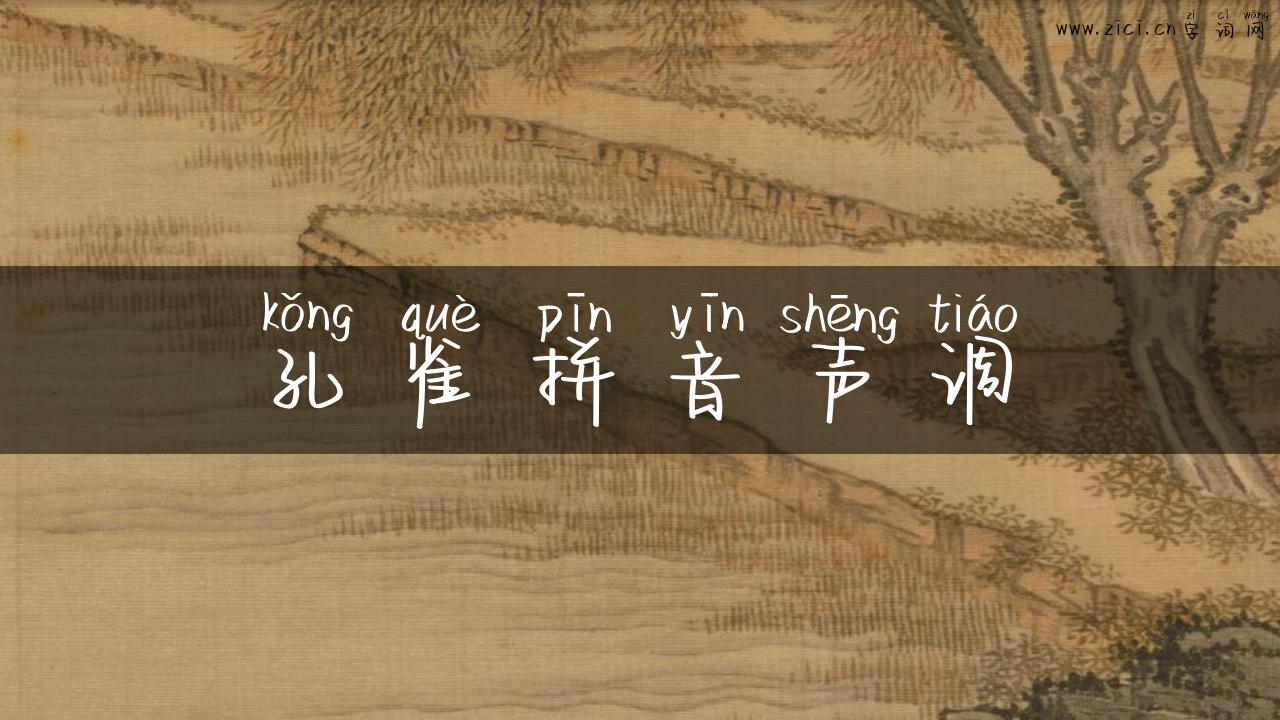 zì cí wǎng
www.zici.cn字词网
kǒng què pīn yīn shēng tiáo
孔雀拼音声调